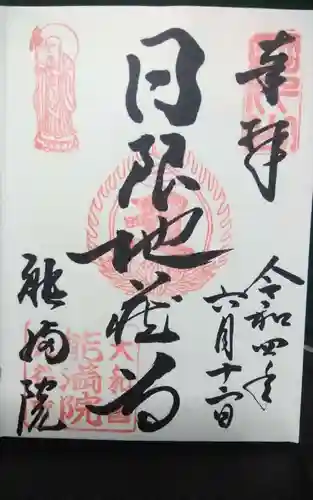 奉拝
令和四年
六月十二日
日限地蔵尊
能満院
大和國
能満院